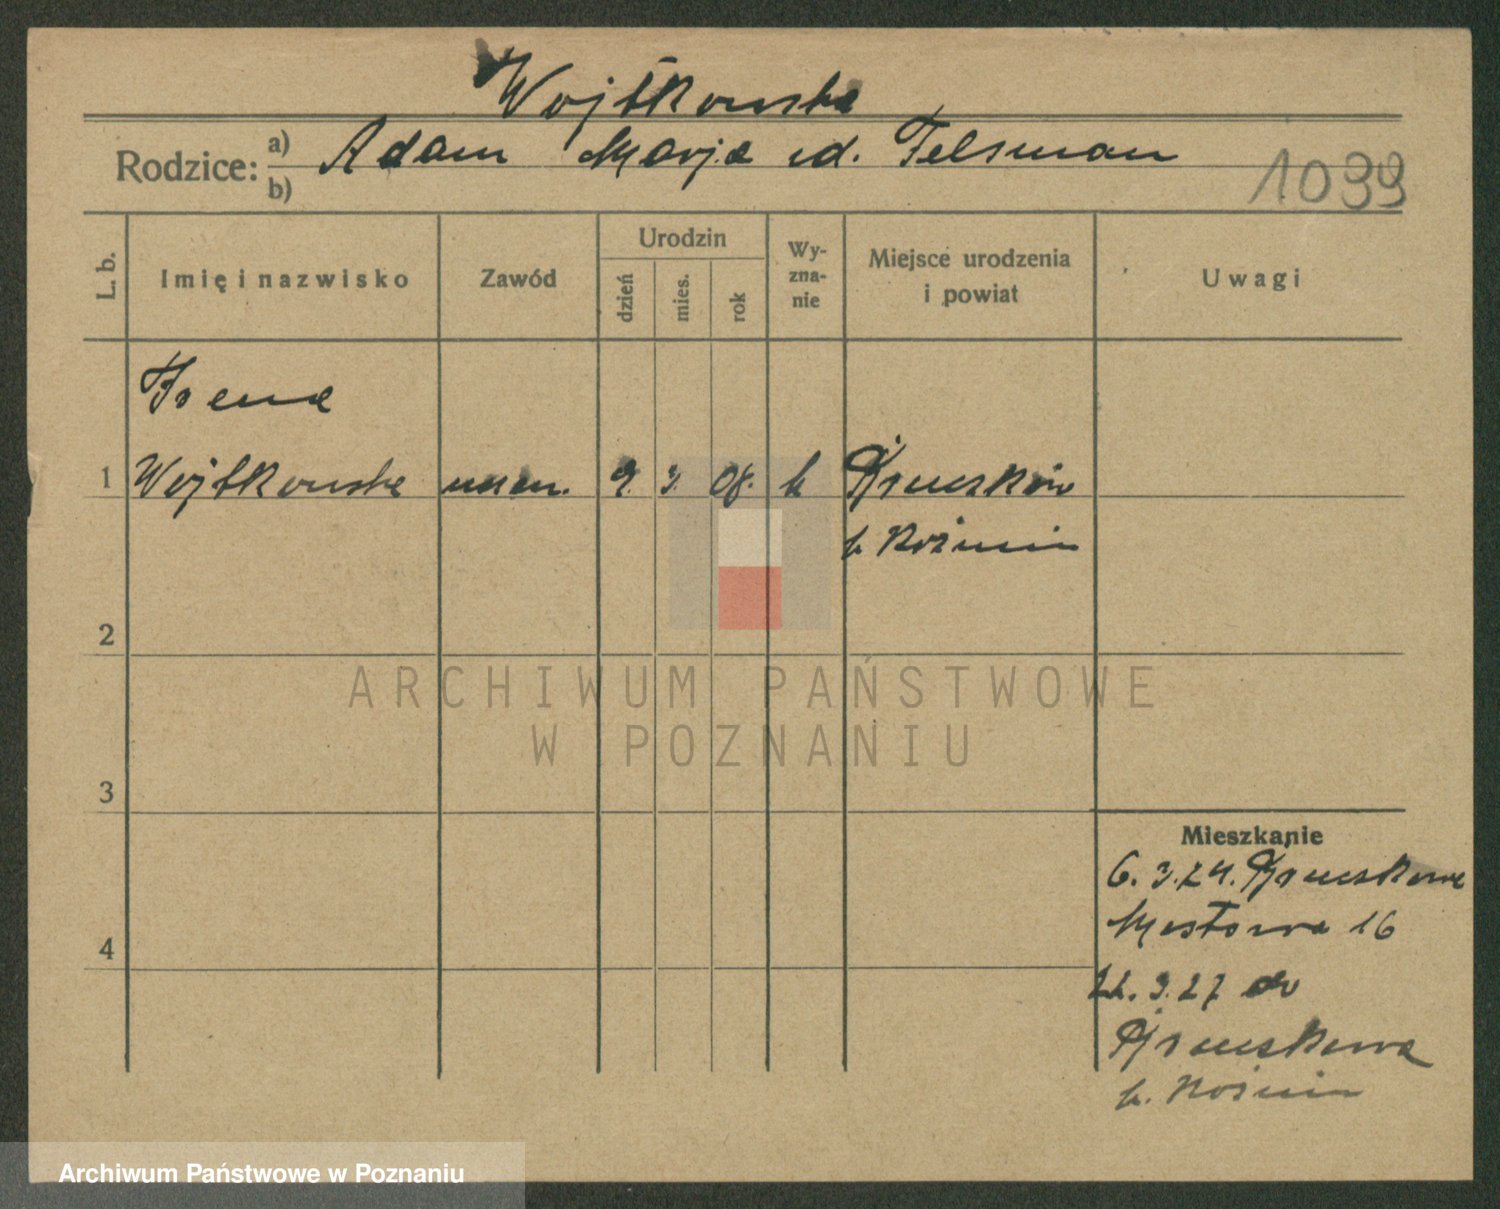 Wojtkowska
Rodzice: a) Adam Marja
b)
1099
L. b. Imię i nazwisko Zawód Urodzin dzień mies. rok Wyznanie Miejsce urodzenia i powiat Uwagi
Irena
1 Wojtkowska uczen. 9. 3. 08. k
p. Koźmin
2
ARCHIWUM PAŃSTWOWE
W POZNANIU
3
Mieszkanie
6. 3. 24.
Mostowa 16
4
22. 3. 27 do
p. Koźmin
Archiwum Państwowe w Poznaniu